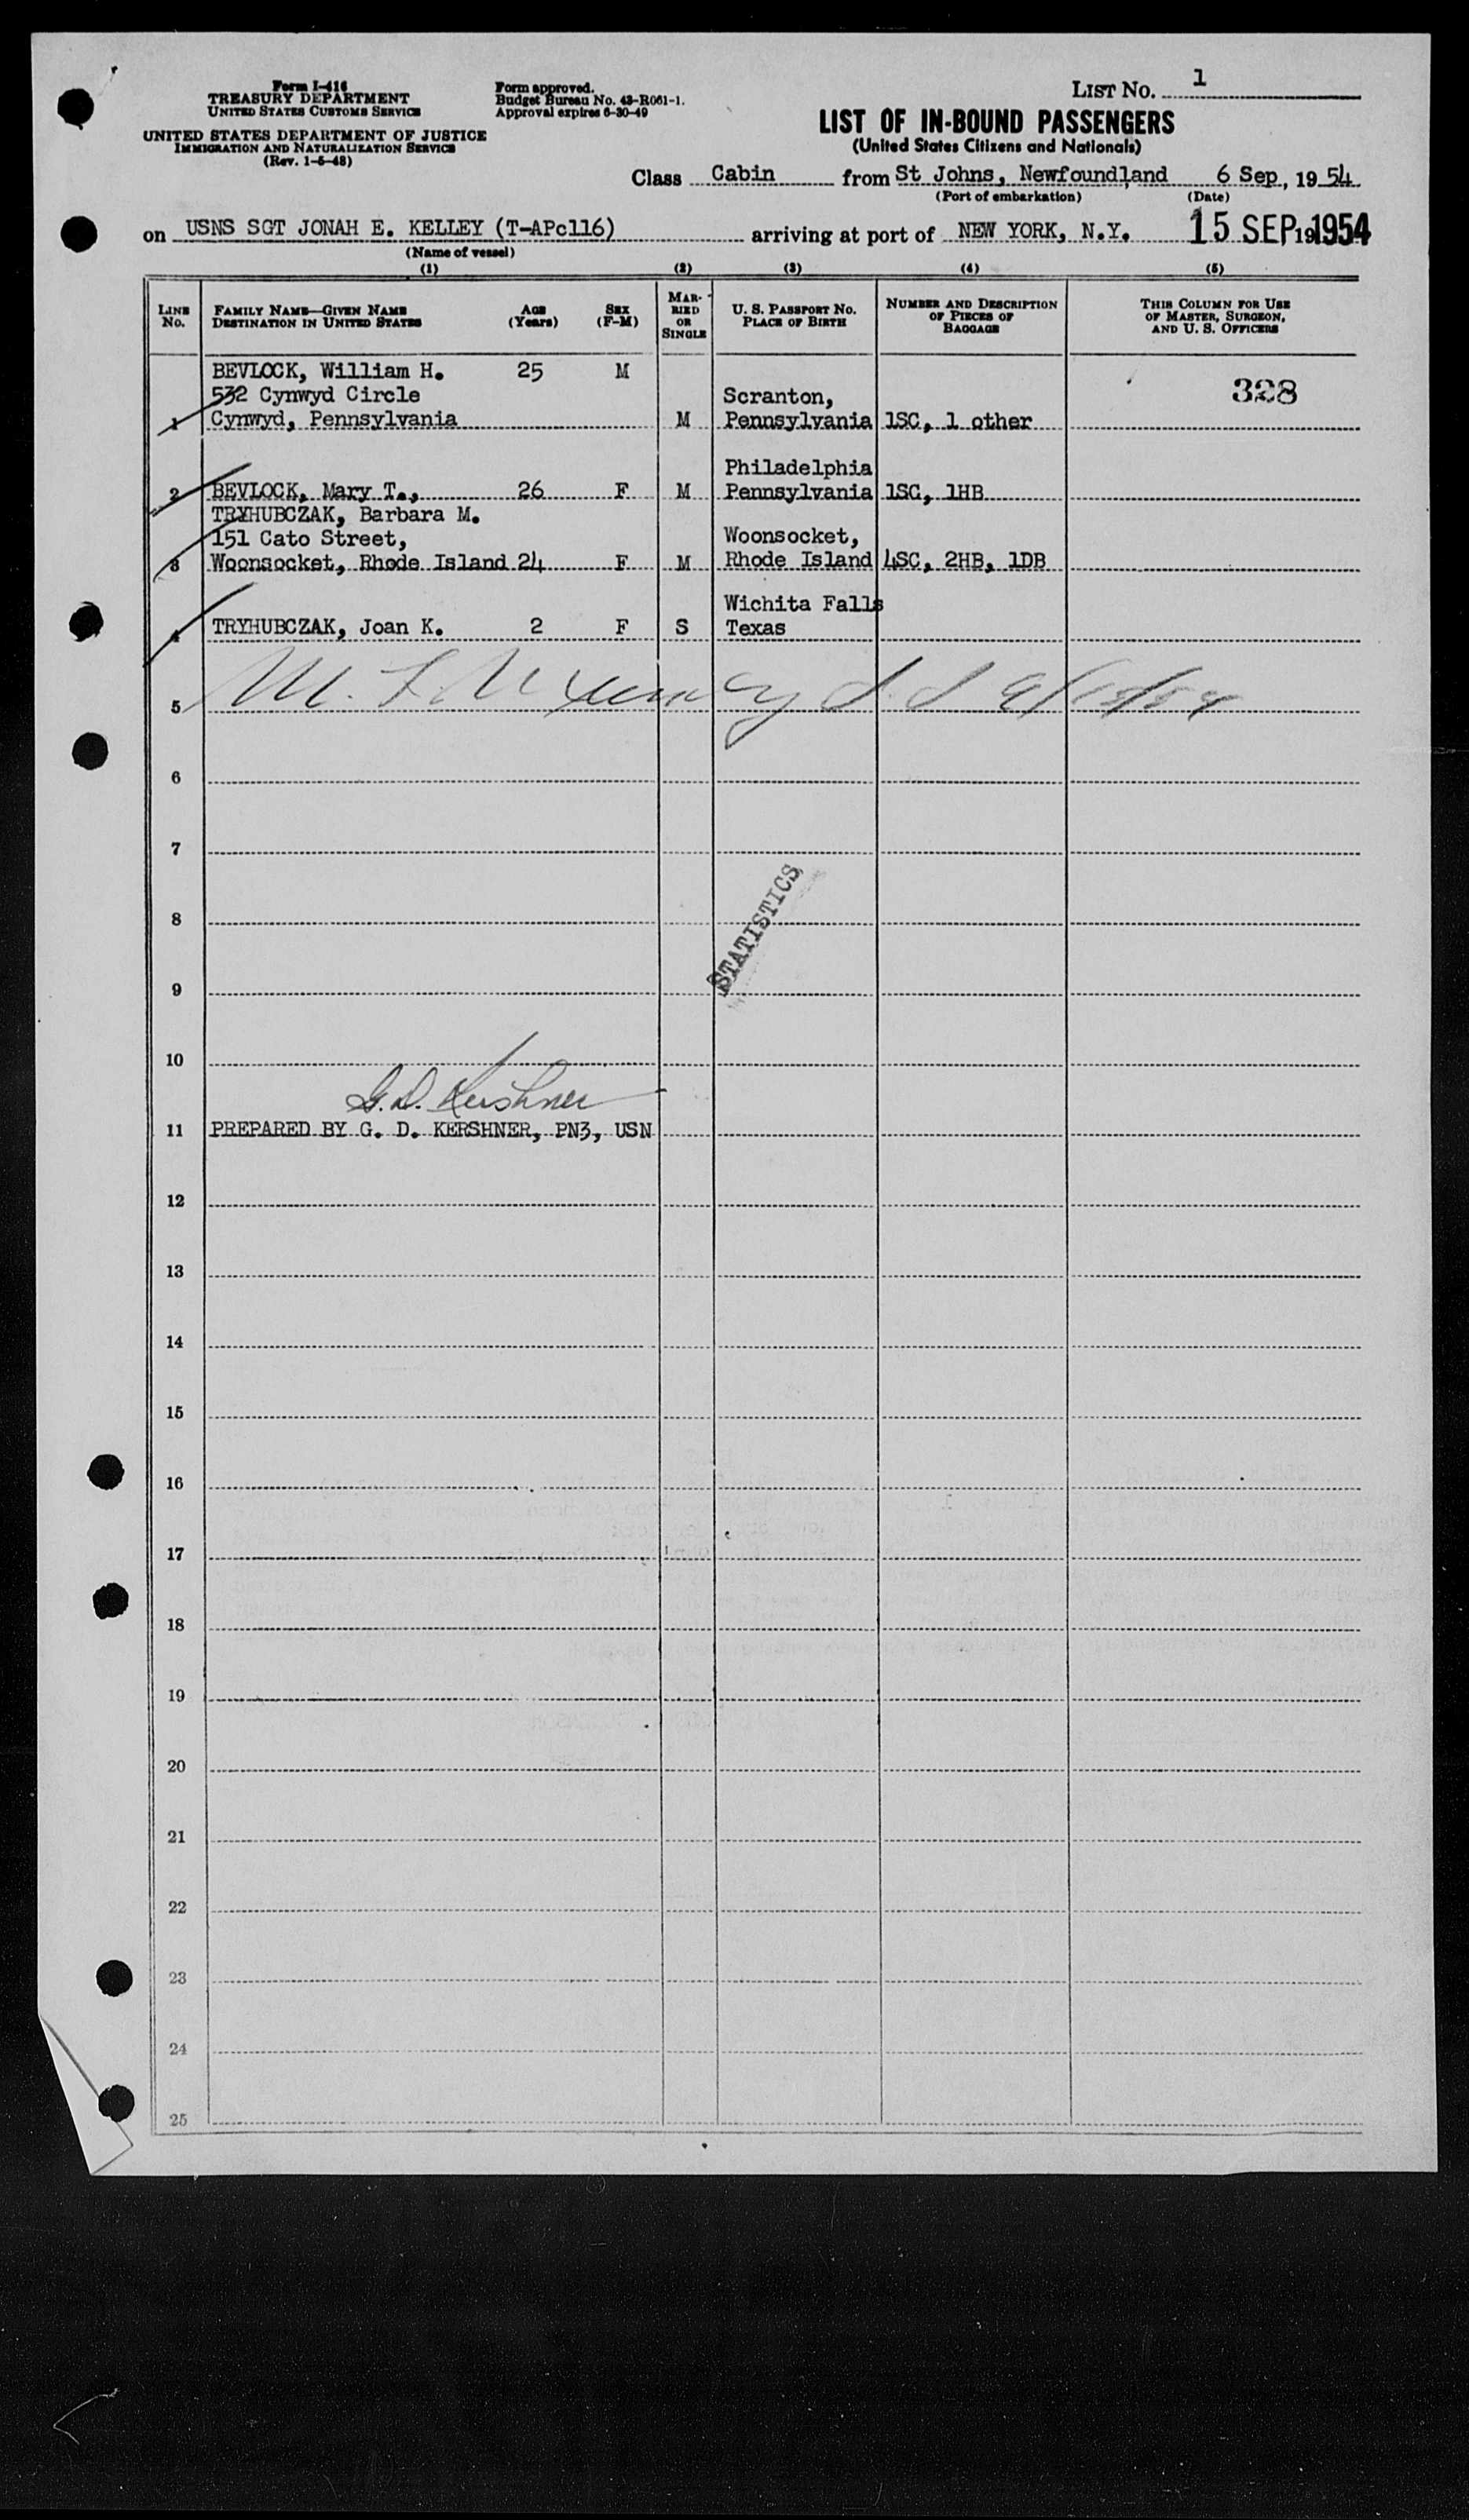 Form I-416
TREASURY DEPARTMENT
UNITED STATES CUSTOMS SERVICE
UNITED STATES DEPARTMENT OF JUSTICE
IMMIGRATION AND NATURALIZATION SERVICE
(Rev. 1-5-48)
Form approved.
Budget Bureau No. 43-R061-1.
Approval expires 6-30-49
LIST NO. 1
LIST OF IN-BOUND PASSENGERS
(United States Citizens and Nationals)
Class Cabin from St Johns, Newfoundland 6 Sep, 19 54
(Port of embarkation) (Date)
on USNS SGT JONAH E. KELLEY (T-APc116) arriving at port of NEW YORK, N.Y. 15 SEP 19 1954
(Name of vessel)
(1) (2) (3) (4) (5)
LINE No. FAMILY NAME—GIVEN NAME DESTINATION IN UNITED STATES AGE (Years) SEX (F-M) MARRIED OR SINGLE U. S. PASSPORT NO. PLACE OF BIRTH NUMBER AND DESCRIPTION OF PIECES OF BAGGAGE THIS COLUMN FOR USE OF MASTER, SURGEON, AND U. S. OFFICERS
BEVLOCK, William H. 25 M
532 Cynwyd Circle Scranton, 328
1 Cynwyd, Pennsylvania M Pennsylvania 1SC, 1 other
Philadelphia
2 BEVLOCK, Mary T., 26 F M Pennsylvania 1SC, 1HB
TRYHUBCZAK, Barbara M.
151 Cato Street, Woonsocket,
3 Woonsocket, Rhode Island 24 F M Rhode Island 4SC, 2HB, 1DB
Wichita Falls
4 TRYHUBCZAK, Joan K. 2 F S Texas
5 9/15/54
6
7
8
STATISTICS
9
10
G. D. Kershner
11 PREPARED BY G. D. KERSHNER, PN3, USN
12
13
14
15
16
17
18
19
20
21
22
23
24
25